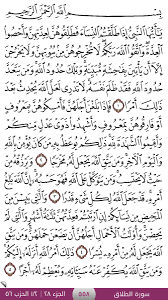 بِسْمِ اللَّهِ الرَّحْمَٰنِ الرَّحِيمِ
يَا أَيُّهَا النَّبِيُّ إِذَا طَلَّقْتُمُ النِّسَاءَ فَطَلِّقُوهُنَّ لِعِدَّتِهِنَّ وَأَحْصُوا
الْعِدَّةَ وَاتَّقُوا اللَّهَ رَبَّكُمْ لَا تُخْرِجُوهُنَّ مِنْ بُيُوتِهِنَّ وَلَا يَخْرُجْنَ
إِلَّا أَنْ يَأْتِينَ بِفَاحِشَةٍ مُبَيِّنَةٍ وَتِلْكَ حُدُودُ اللَّهِ وَمَنْ يَتَعَدَّ
حُدُودَ اللَّهِ فَقَدْ ظَلَمَ نَفْسَهُ لَا تَدْرِي لَعَلَّ اللَّهَ يُحْدِثُ بَعْدَ
ذَٰلِكَ أَمْرًا ١ فَإِذَا بَلَغْنَ أَجَلَهُنَّ فَأَمْسِكُوهُنَّ بِمَعْرُوفٍ
أَوْ فَارِقُوهُنَّ بِمَعْرُوفٍ وَأَشْهِدُوا ذَوَيْ عَدْلٍ مِنْكُمْ
وَأَقِيمُوا الشَّهَادَةَ لِلَّهِ ذَٰلِكُمْ يُوعَظُ بِهِ مَنْ كَانَ يُؤْمِنُ بِاللَّهِ
وَالْيَوْمِ الْآخِرِ وَمَنْ يَتَّقِ اللَّهَ يَجْعَلْ لَهُ مَخْرَجًا ٢ وَيَرْزُقْهُ مِنْ
حَيْثُ لَا يَحْتَسِبُ وَمَنْ يَتَوَكَّلْ عَلَى اللَّهِ فَهُوَ حَسْبُهُ إِنَّ اللَّهَ بَالِغُ
أَمْرِهِ قَدْ جَعَلَ اللَّهُ لِكُلِّ شَيْءٍ قَدْرًا ٣ وَاللَّائِي يَئِسْنَ مِنَ
الْمَحِيضِ مِنْ نِسَائِكُمْ إِنِ ارْتَبْتُمْ فَعِدَّتُهُنَّ ثَلَاثَةُ أَشْهُرٍ وَاللَّائِي
لَمْ يَحِضْنَ وَأُولَاتُ الْأَحْمَالِ أَجَلُهُنَّ أَنْ يَضَعْنَ حَمْلَهُنَّ وَمَنْ يَتَّقِ
اللَّهَ يَجْعَلْ لَهُ مِنْ أَمْرِهِ يُسْرًا ٤ ذَٰلِكَ أَمْرُ اللَّهِ أَنْزَلَهُ إِلَيْكُمْ
وَمَنْ يَتَّقِ اللَّهَ يُكَفِّرْ عَنْهُ سَيِّئَاتِهِ وَيُعْظِمْ لَهُ أَجْرًا ٥
سورة الطلاق ٥٥٨ الجزء ٢٨ ١/٢ الحزب ٥٦